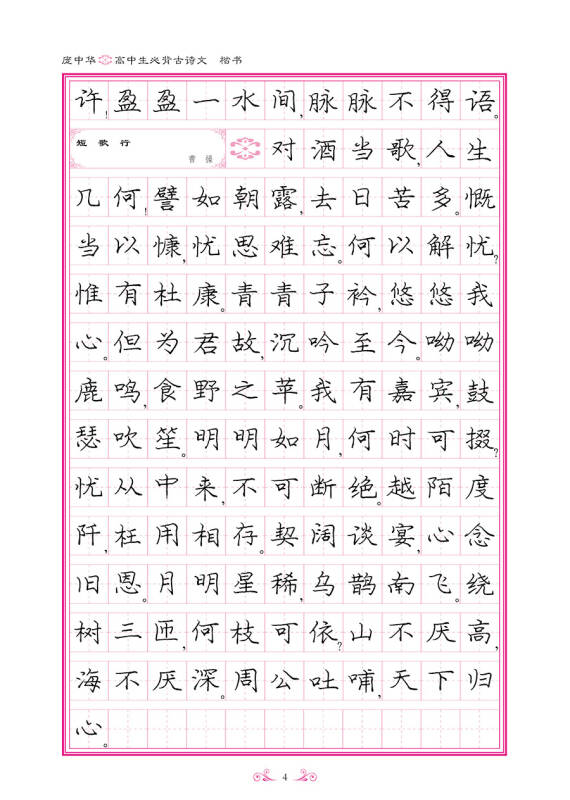 庞中华 高中生必背古诗文 楷书
许!盈盈一水间,脉脉不得语。
短歌行
曹操
对酒当歌,人生
几何!譬如朝露,去日苦多。慨
当以慷,忧思难忘。何以解忧?
惟有杜康。青青子衿,悠悠我
心。但为君故,沉吟至今。呦呦
鹿鸣,食野之苹。我有嘉宾,鼓
瑟吹笙。明明如月,何时可掇?
忧从中来,不可断绝。越陌度
阡,枉用相存。契阔谈宴,心念
旧恩。月明星稀,乌鹊南飞。绕
树三匝,何枝可依?山不厌高,
海不厌深。周公吐哺,天下归
心。
4